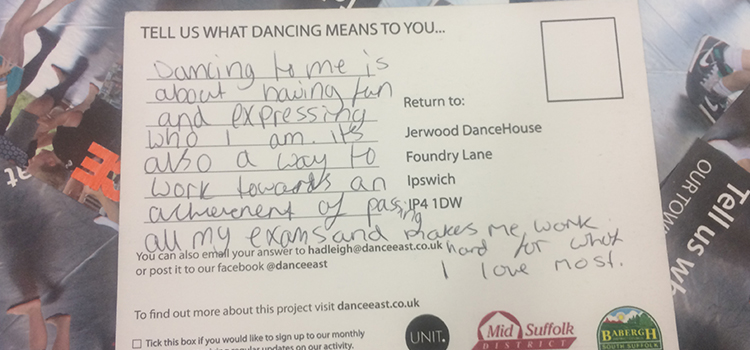 TELL US WHAT DANCING MEANS TO YOU...
Dancing to me is
about having fun
and expressing
who I am. its
also a way to
work towards an
achievement of passing
all my exams and makes me work
hard for what
I love most.
Return to:
Jerwood DanceHouse
Foundry Lane
Ipswich
IP4 1DW
You can also email your answer to hadleigh@danceeast.co.uk
or post it to our facebook @danceeast
To find out more about this project visit danceeast.co.uk
Tick this box if you would like to sign up to our monthly
regular updates on our activity.
UNIT.
Mid Suffolk
DISTRICT
BABERGH
SOUTH SUFFOLK
at
OUR TOW
Tell us wh